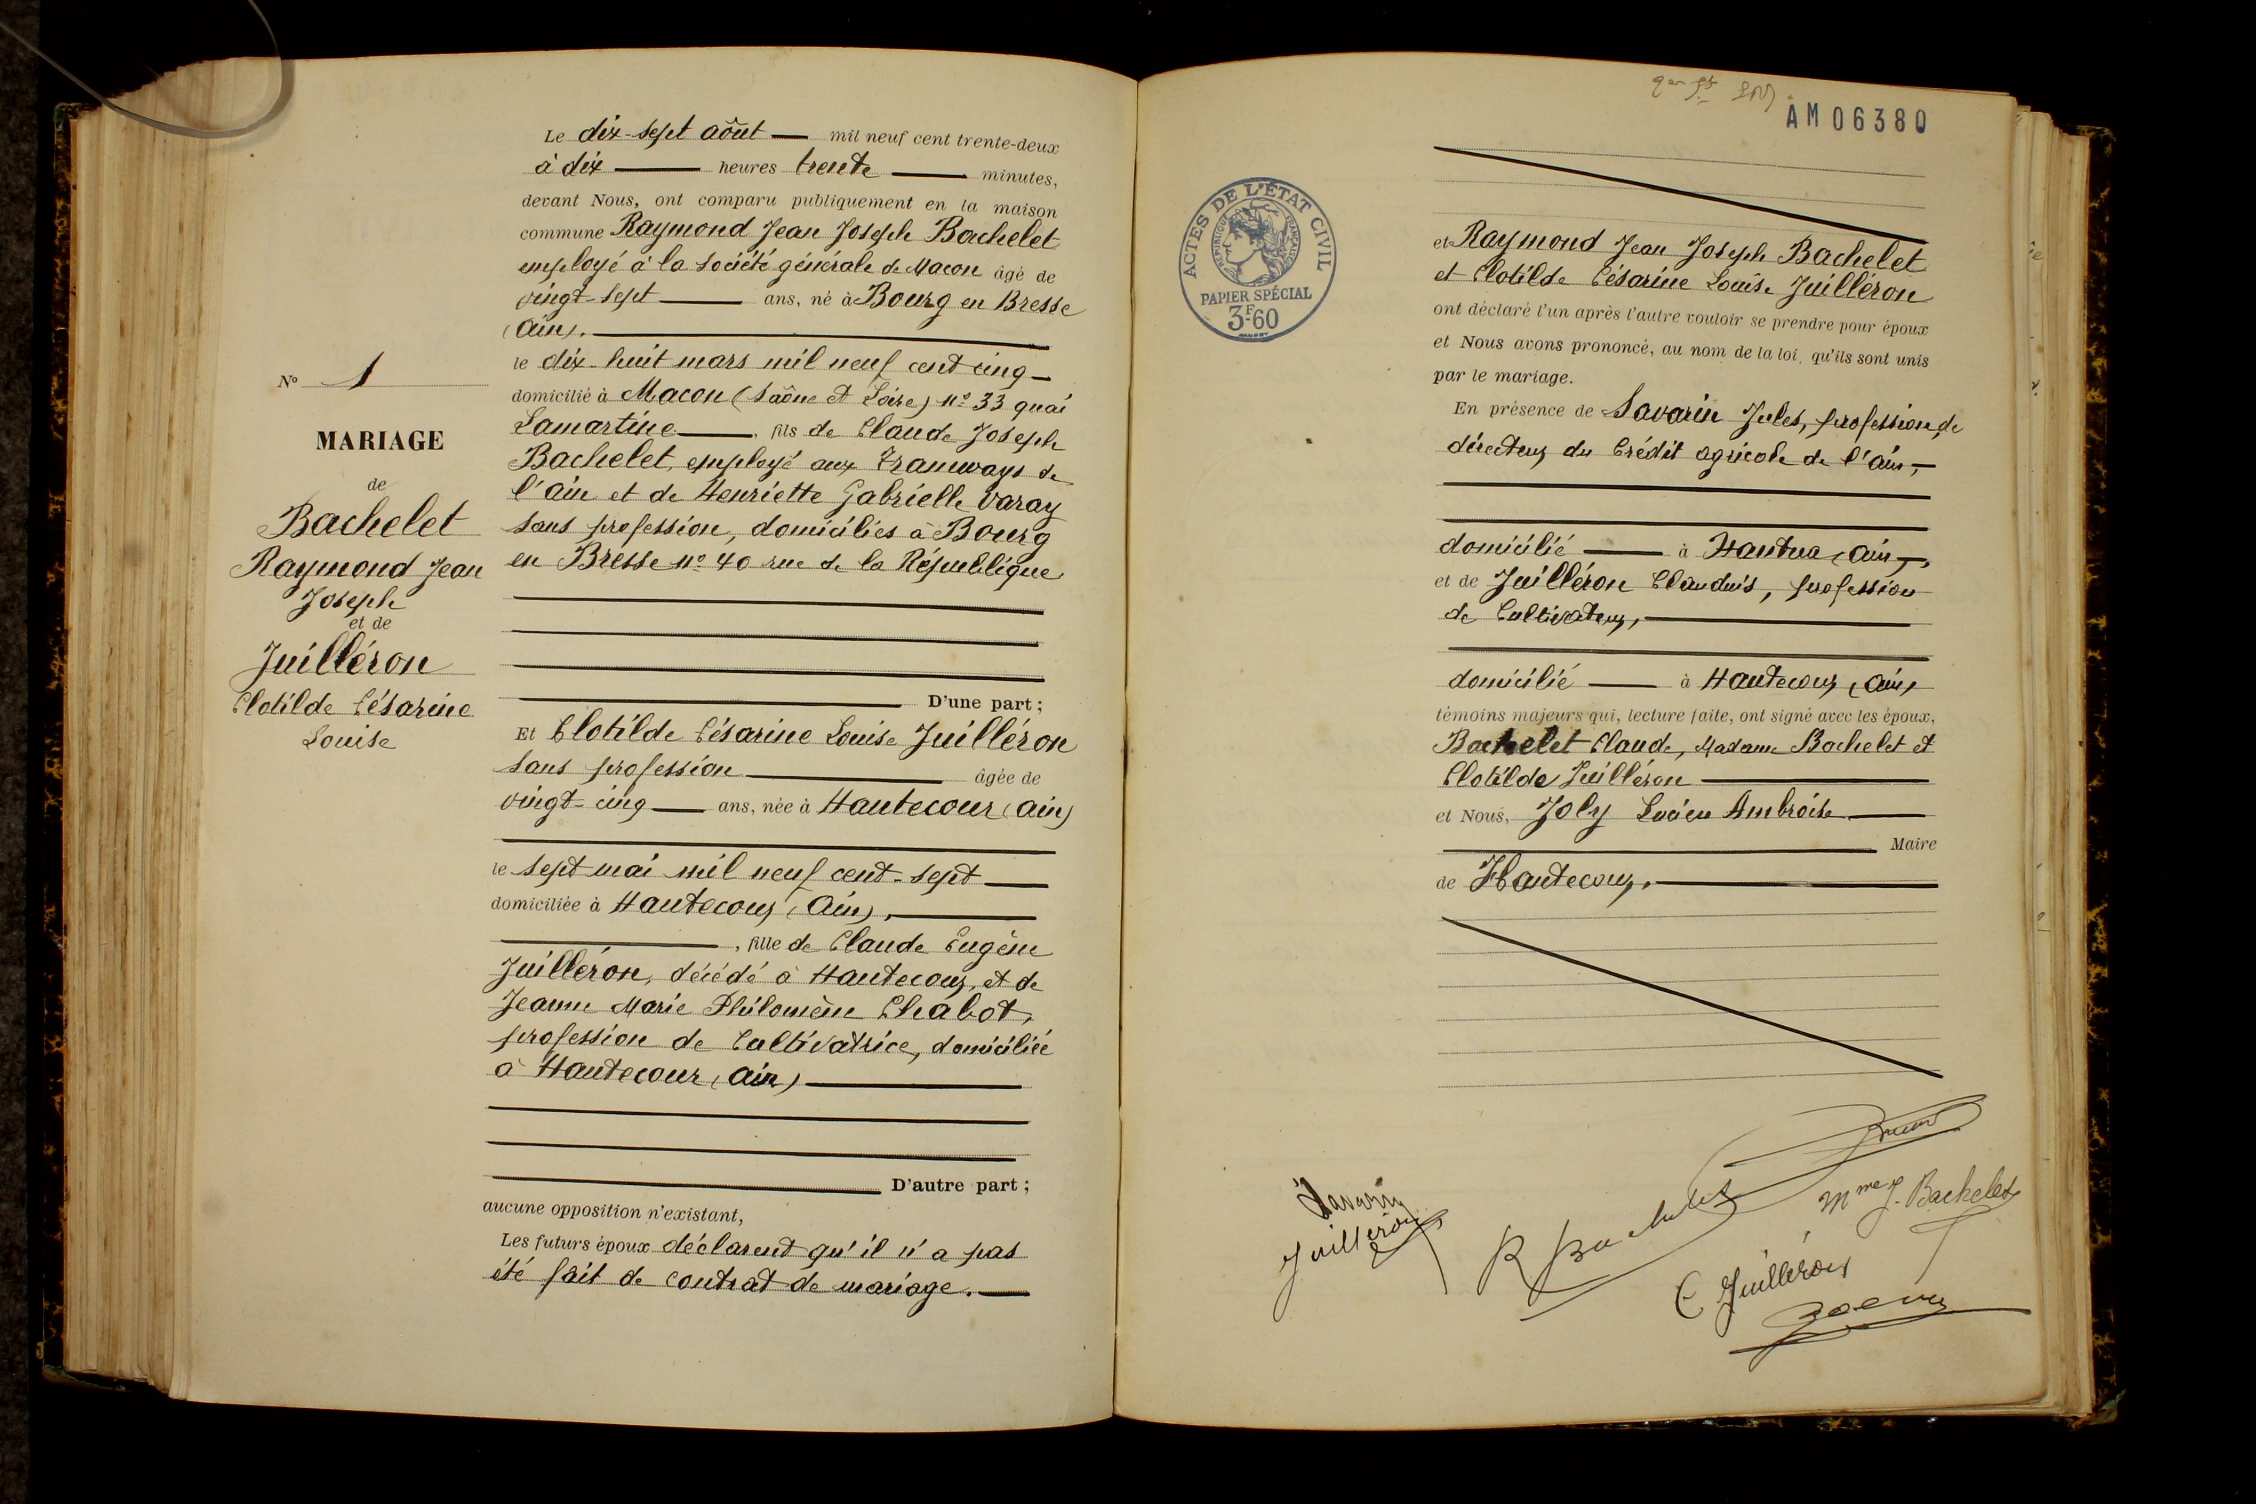 Nº 1
MARIAGE
de
Bachelet
Raymond Jean
Joseph
et de
Juilléron
Clotilde Césarine
Louise
Le dix-sept août mil neuf cent trente-deux
à dix heures trente minutes,
devant Nous, ont comparu publiquement en la maison
commune Raymond Jean Joseph Bachelet
employé à la Société générale de Macon âgé de
vingt-sept ans, né à Bourg en Bresse
(Ain).
le dix-huit mars mil neuf cent cinq
domicilié à Macon (Saône et Loire) nº 33 quai
Lamartine, fils de Claude Joseph
Bachelet, employé aux Tramways de
l'Ain et de Henriette Gabrielle Varay
sans profession, domiciliés à Bourg
en Bresse nº 40 rue de la République
D'une part ;
Et Clotilde Césarine Louise Juilléron
sans profession âgée de
vingt-cinq ans, née à Hautecour (Ain)
le sept mai mil neuf cent-sept
domiciliée à Hautecour (Ain),
, fille de Claude Eugène
Juilléron, décédé à Hautecour, et de
Jeanne Marie Philomène Chabot,
profession de Cultivatrice, domiciliée
à Hautecour (Ain)
D'autre part ;
aucune opposition n'existant,
Les futurs époux déclarent qu'il n'a pas
été fait de contrat de mariage.
AM06380
ACTES DE L'ÉTAT CIVIL
RÉPUBLIQUE FRANÇAISE
PAPIER SPÉCIAL
3F60
et Raymond Jean Joseph Bachelet
et Clotilde Césarine Louise Juilléron
ont déclaré l'un après l'autre vouloir se prendre pour époux
et Nous avons prononcé, au nom de la loi, qu'ils sont unis
par le mariage.
En présence de Savarin Jules, profession de
directeur du Crédit agricole de l'Ain,
domicilié à Nantua (Ain),
et de Juilléron Claudius, profession
de Cultivateur,
domicilié à Hautecour (Ain)
témoins majeurs qui, lecture faite, ont signé avec les époux,
Bachelet Claude, Madame Bachelet et
Clotilde Juilléron
et Nous, Joly Lucien Ambroise
Maire
de Hautecour,
Savarin
Juilleron
R Bachelet
Mme J. Bachelet
C Juilléron